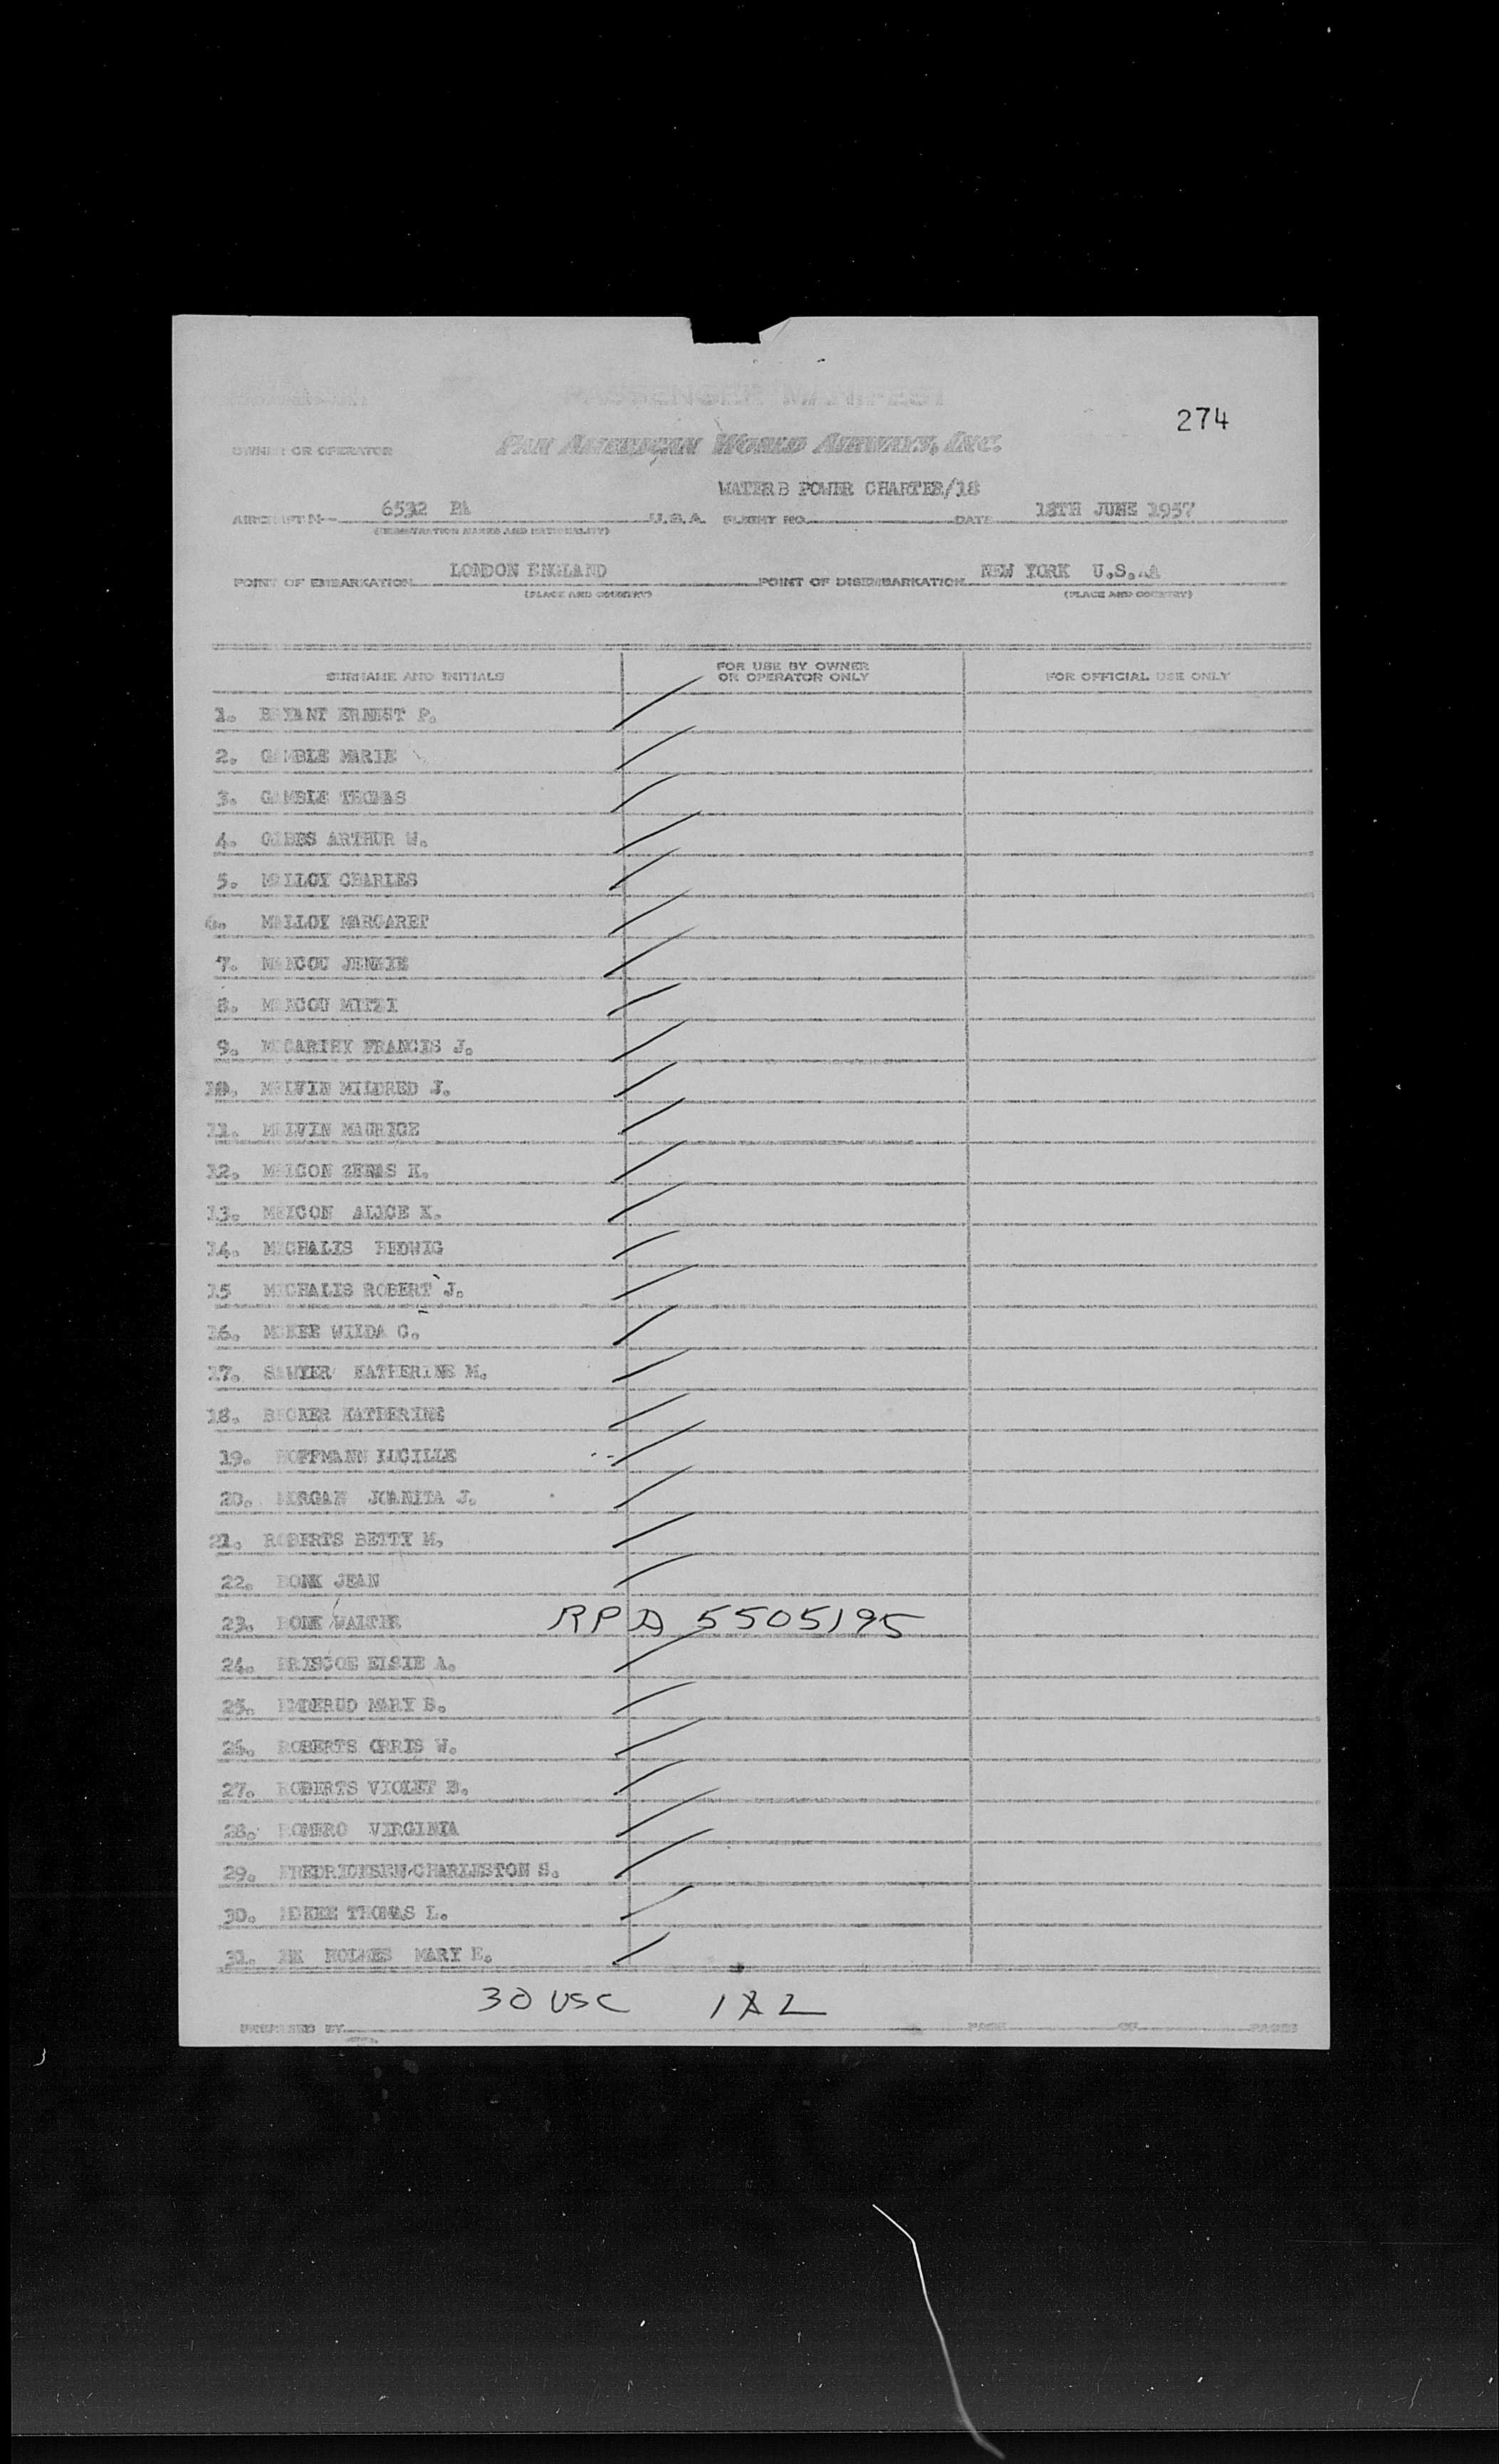 PASSENGER MANIFEST
274
OWNER OR OPERATOR PAN AMERICAN WORLD AIRWAYS, INC.
WATER B POWER CHARTER/18
AIRCRAFT N— 6532 PA U.S.A. FLIGHT NO. DATE 18TH JUNE 1957
(REGISTRATION MARKS AND NATIONALITY)
POINT OF EMBARKATION LONDON ENGLAND POINT OF DISEMBARKATION NEW YORK U.S.AA
(PLACE AND COUNTRY) (PLACE AND COUNTRY)
SURNAME AND INITIALS FOR USE BY OWNER OR OPERATOR ONLY FOR OFFICIAL USE ONLY
1. BRYANT ERNEST P.
2. GAMBLE MARIE
3. GAMBLE THOMAS
4. GIBBS ARTHUR W.
5. MALLOY CHARLES
6. MALLOY MARGARET
7. MANCOU JENNIE
8. MANCOU MITZI
9. MCCARTHY FRANCIS J.
10. MELVIN MILDRED J.
11. MELVIN MAURICE
12. ZENAS K.
13. ALICE K.
14. MICHALIS HEDWIG
15 MICHALIS ROBERT J.
16. MCKEE WILDA C.
17. SAWYER KATHERINE M.
18. KATHERINE
19. HOFFMANN LUCILLE
20. MORGAN JUANITA J.
21. ROBERTS BETTY M.
22. BONK JEAN
23. BONK WALTER RPD 5505195
24. BRISCOE ELSIE A.
25. MARY B.
26. ROBERTS ORRIS W.
27. ROBERTS VIOLET B.
28. ROMERO VIRGINIA
29. CHARLESTON S.
30. MCKEE THOMAS L.
31. HOLMES MARY E.
30 USC 1X2
PREPARED BY PAGE OF PAGES